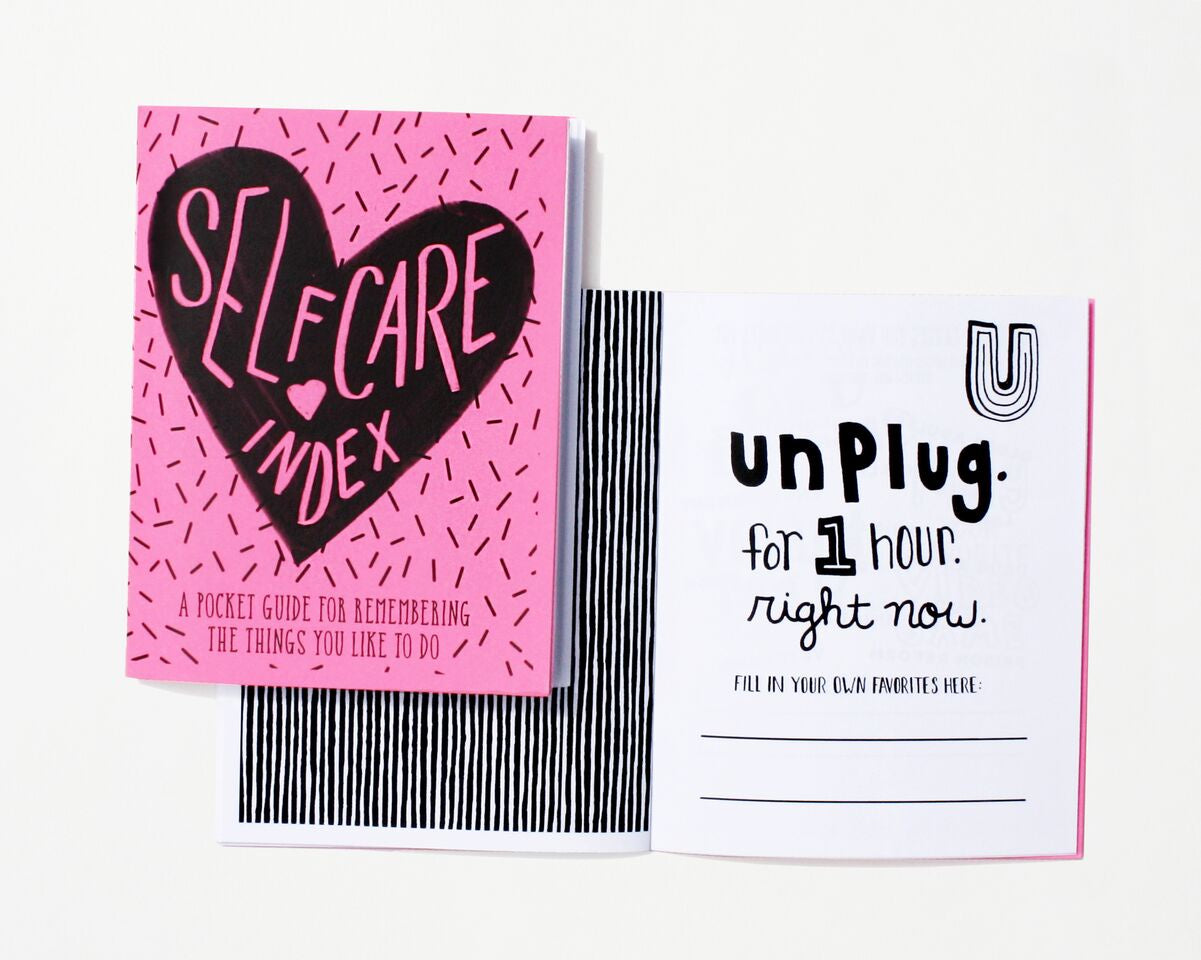 SELF CARE
INDEX
A POCKET GUIDE FOR REMEMBERING
THE THINGS YOU LIKE TO DO
U
unplug.
for 1 hour.
right now.
FILL IN YOUR OWN FAVORITES HERE: